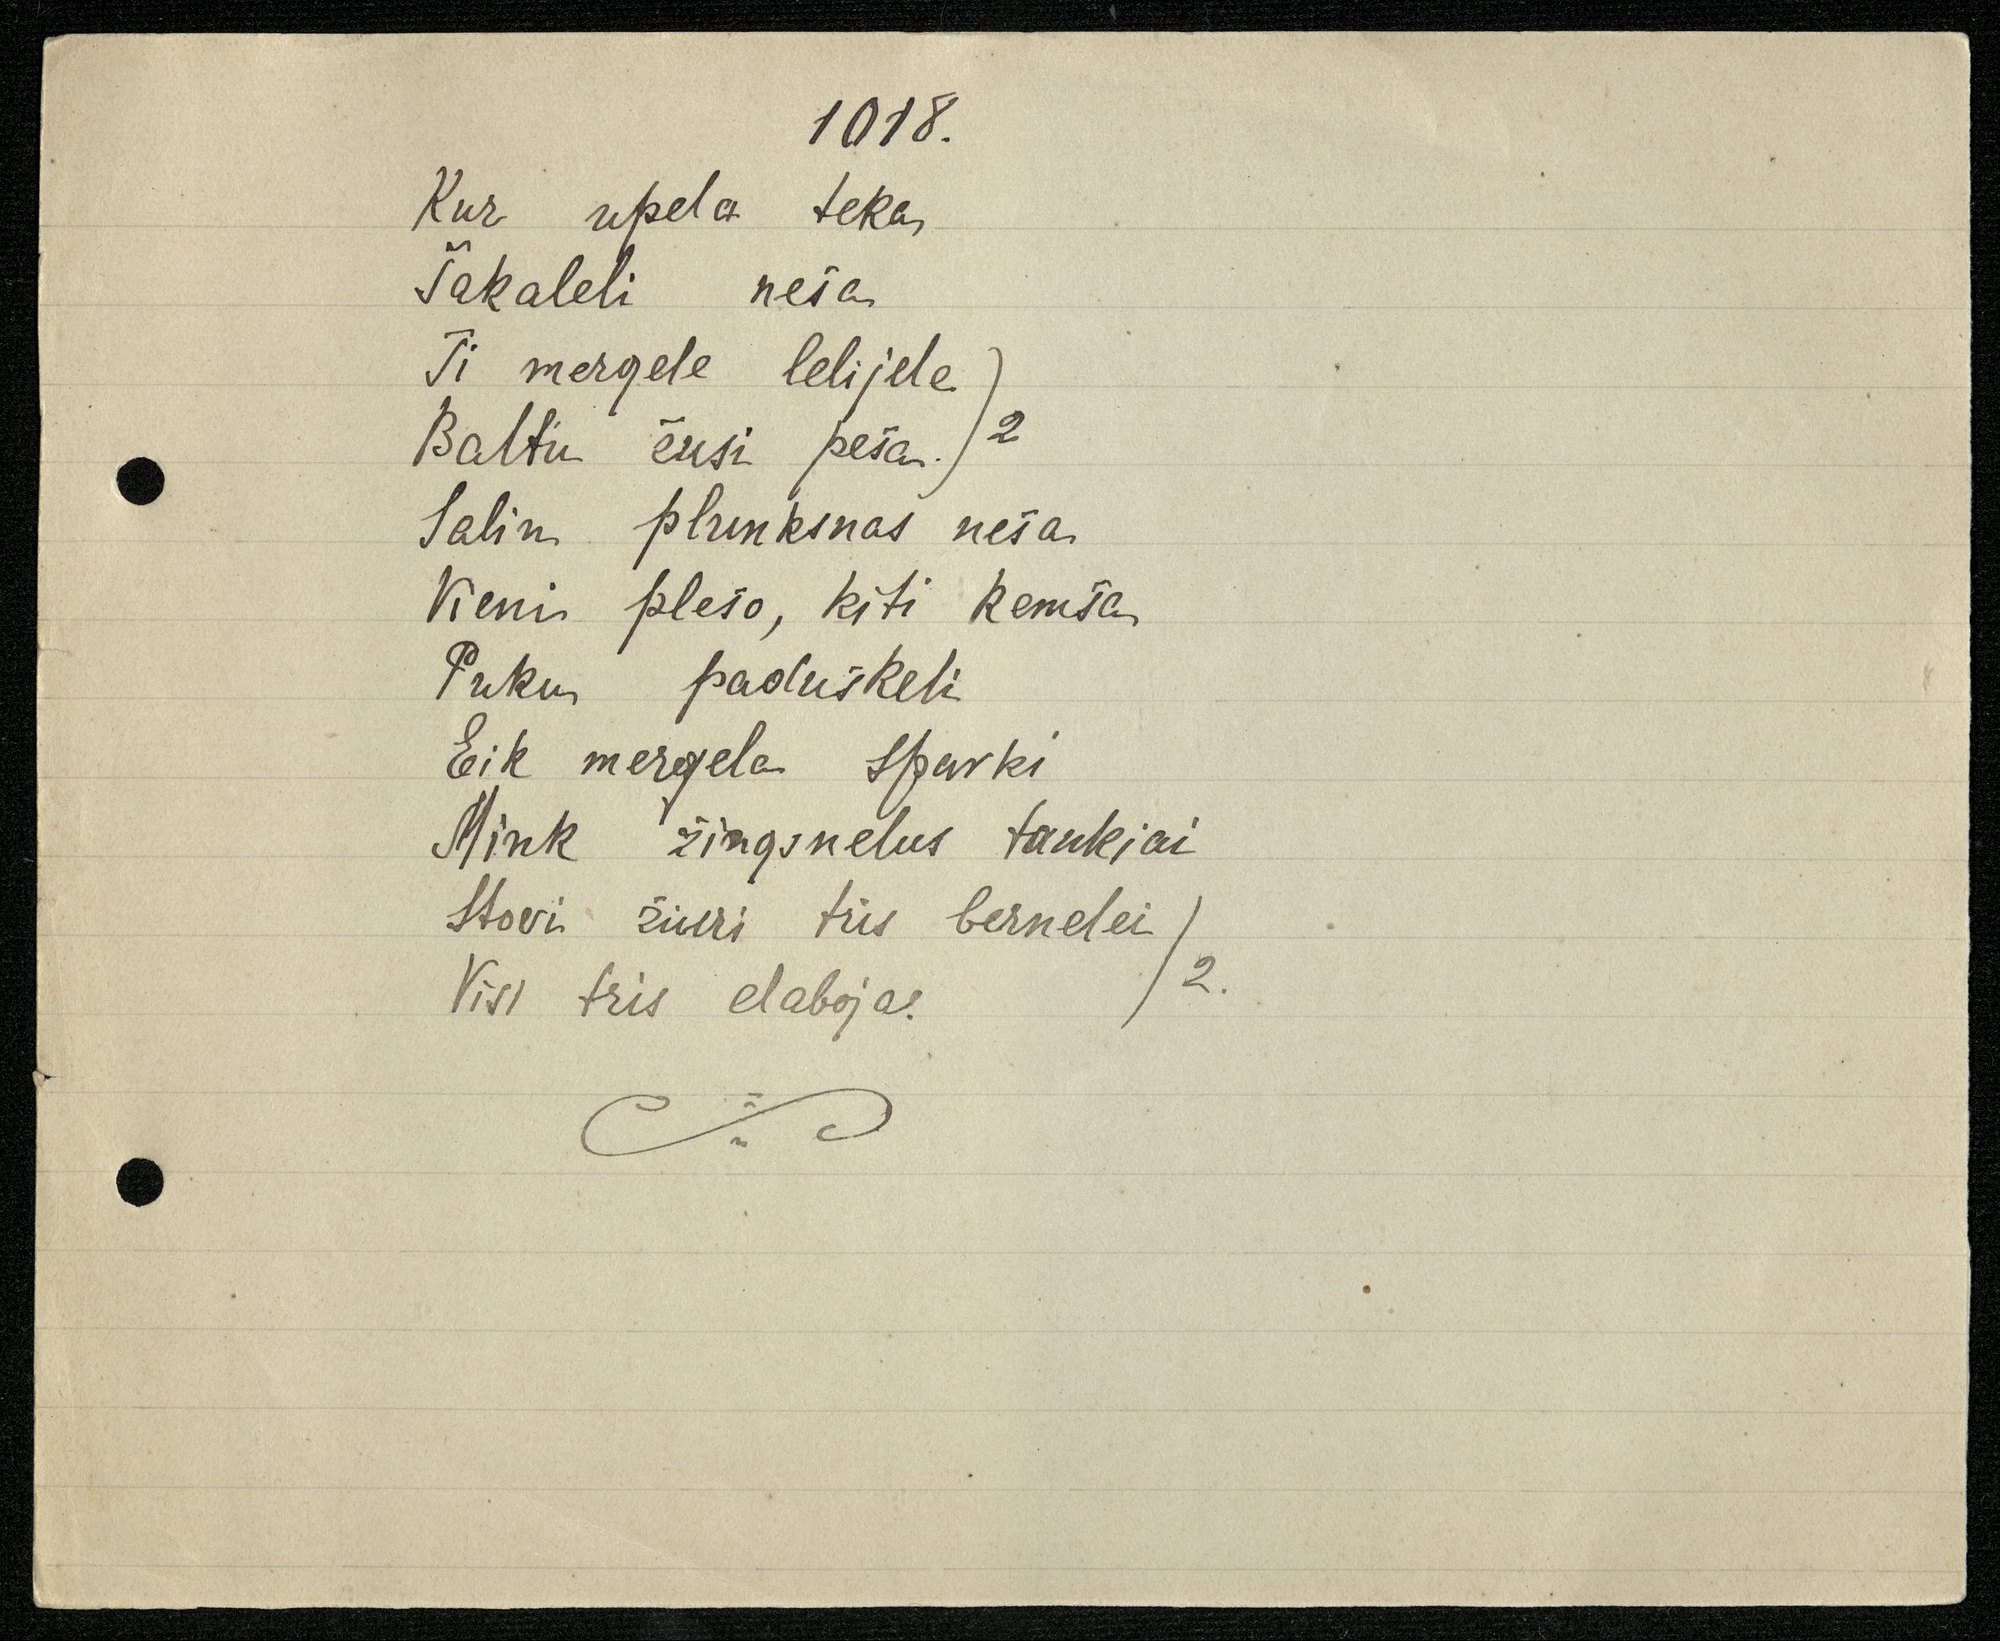 1018.
Kur upela teka
Šakaleli neša
Ti mergele lelijele
Baltu žusi peša. 2
Salin plunksnas neša
Vieni plešo, kiti kemša
Puku paduškeli
Eik mergela sparki
Mink žingsnelus tankiai
Stovi žiuri tris bernelei
Visi tris elaboja. 2.